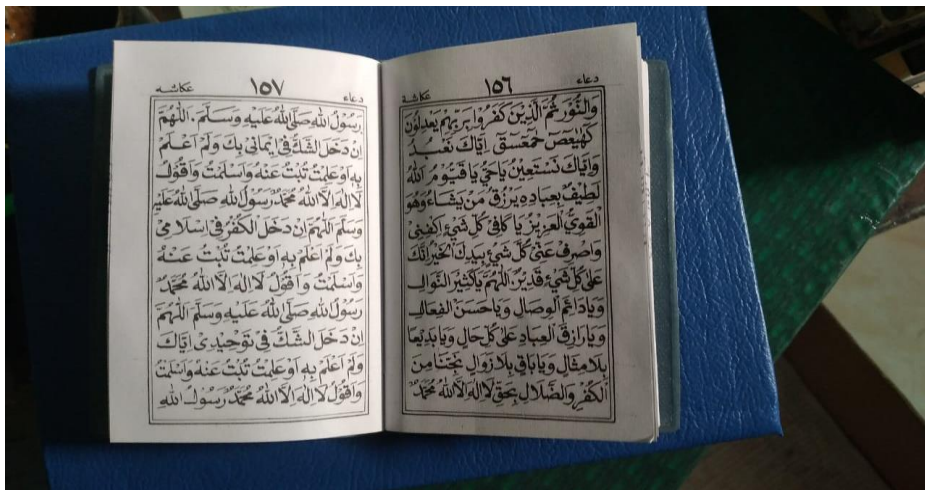 دعاء ١٥٦ عكاشة
وَالنُّوْرَ ثُمَّ الَّذِيْنَ كَفَرُوْا بِرَبِّهِمْ يَعْدِلُوْنَ
كٓهٰيٰعٓصٓ حٰمٓعٓسٓقٓ اِيَّاكَ نَعْبُدُ
وَاِيَّاكَ نَسْتَعِيْنُ يَاحَيُّ يَا قَيُّوْمُ اَللّٰهُ
لَطِيْفٌ بِعِبَادِهِ يَرْزُقُ مَنْ يَشَاءُ وَهُوَ
الْقَوِيُّ الْعَزِيْزُ يَا كَافِيَ كُلِّ شَيْءٍ اِكْفِنِيْ
وَاصْرِفْ عَنِّيْ كُلَّ شَيْءٍ بِيَدِكَ الْخَيْرُ اِنَّكَ
عَلٰى كُلِّ شَيْءٍ قَدِيْرٌ. اَللّٰهُمَّ يَاكَثِيْرَ النَّوَالِ
وَيَادَائِمَ الْوِصَالِ وَيَاحَسَنَ الْفِعَالِ
وَيَارَازِقَ الْعِبَادِ عَلٰى كُلِّ حَالٍ وَيَابَدِيْعًا
بِلَامِثَالٍ وَيَابَاقِيْ بِلَازَوَالٍ نَجِّنَا مِنَ
الْكُفْرِ وَالضَّلَالِ بِحَقِّ لَااِلٰهَ اِلَّااللّٰهُ مُحَمَّدٌ
دعاء ١٥٧ عكاشه
رَسُوْلُ اللّٰهِ صَلَّى اللّٰهُ عَلَيْهِ وَسَلَّمَ. اَللّٰهُمَّ
اِنْ دَخَلَ الشَّكُّ فِيْ اِيْمَانِيْ بِكَ وَلَمْ اَعْلَمْ
بِهِ اَوْعَلِمْتُ تُبْتُ عَنْهُ وَاَسْلَمْتُ وَاَقُوْلُ
لَااِلٰهَ اِلَّااللّٰهُ مُحَمَّدٌ رَسُوْلُ اللّٰهِ صَلَّى اللّٰهُ عَلَيْهِ
وَسَلَّمَ اَللّٰهُمَّ اِنْ دَخَلَ الْكُفْرُ فِيْ اِسْلَامِيْ
بِكَ وَلَمْ اَعْلَمْ بِهِ اَوْعَلِمْتُ تُبْتُ عَنْهُ
وَاَسْلَمْتُ وَاَقُوْلُ لَااِلٰهَ اِلَّااللّٰهُ مُحَمَّدٌ
رَسُوْلُ اللّٰهِ صَلَّى اللّٰهُ عَلَيْهِ وَسَلَّمَ اَللّٰهُمَّ
اِنْ دَخَلَ الشَّكُّ فِيْ تَوْحِيْدِيْ اِيَّاكَ
وَلَمْ اَعْلَمْ بِهِ اَوْعَلِمْتُ تُبْتُ عَنْهُ وَاَسْلَمْتُ
وَاَقُوْلُ لَااِلٰهَ اِلَّااللّٰهُ مُحَمَّدٌ رَسُوْلُ اللّٰهِ